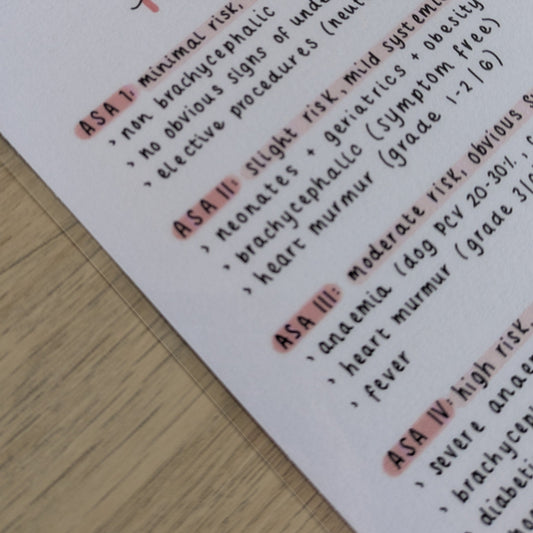 ASA I: minimal risk,
› non brachycephalic
› no obvious signs of unde
› elective procedures (neut
ASA II: slight risk, mild systemi
› neonates + geriatrics + obesity
› brachycephalic (symptom free)
› heart murmur (grade 1-2/6)
ASA III: moderate risk, obvious s
› anaemia (dog PCV 20-30%,
› heart murmur (grade 3/
› fever
ASA IV: high risk,
› severe anae
› brachycep
diabeti